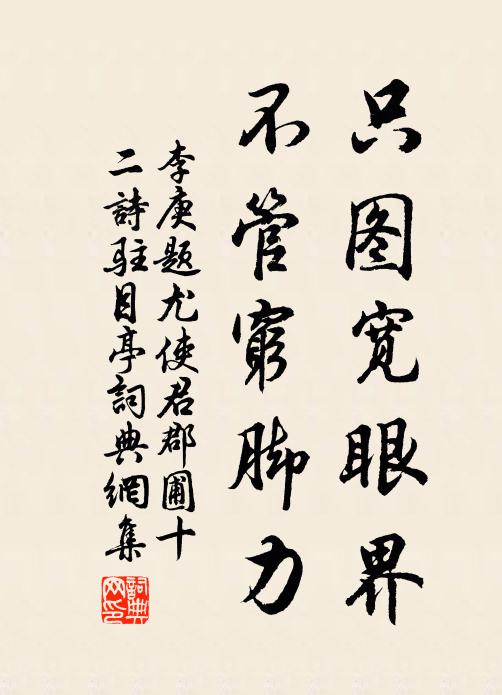 只图宽眼界
不管窮脚力
李庚题尤使君郡圃十
二詩駐目亭詞典網集
詞典
网印